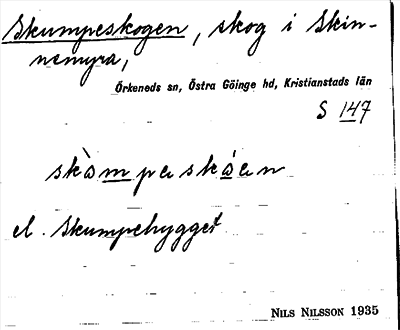 Skumpeskogen, skog i Skin-
nemyra,
Örkeneds sn, Östra Göinge hd, Kristianstads län
S 147
skòmpaskáen
el. Skumpehygget
NILS NILSSON 1935